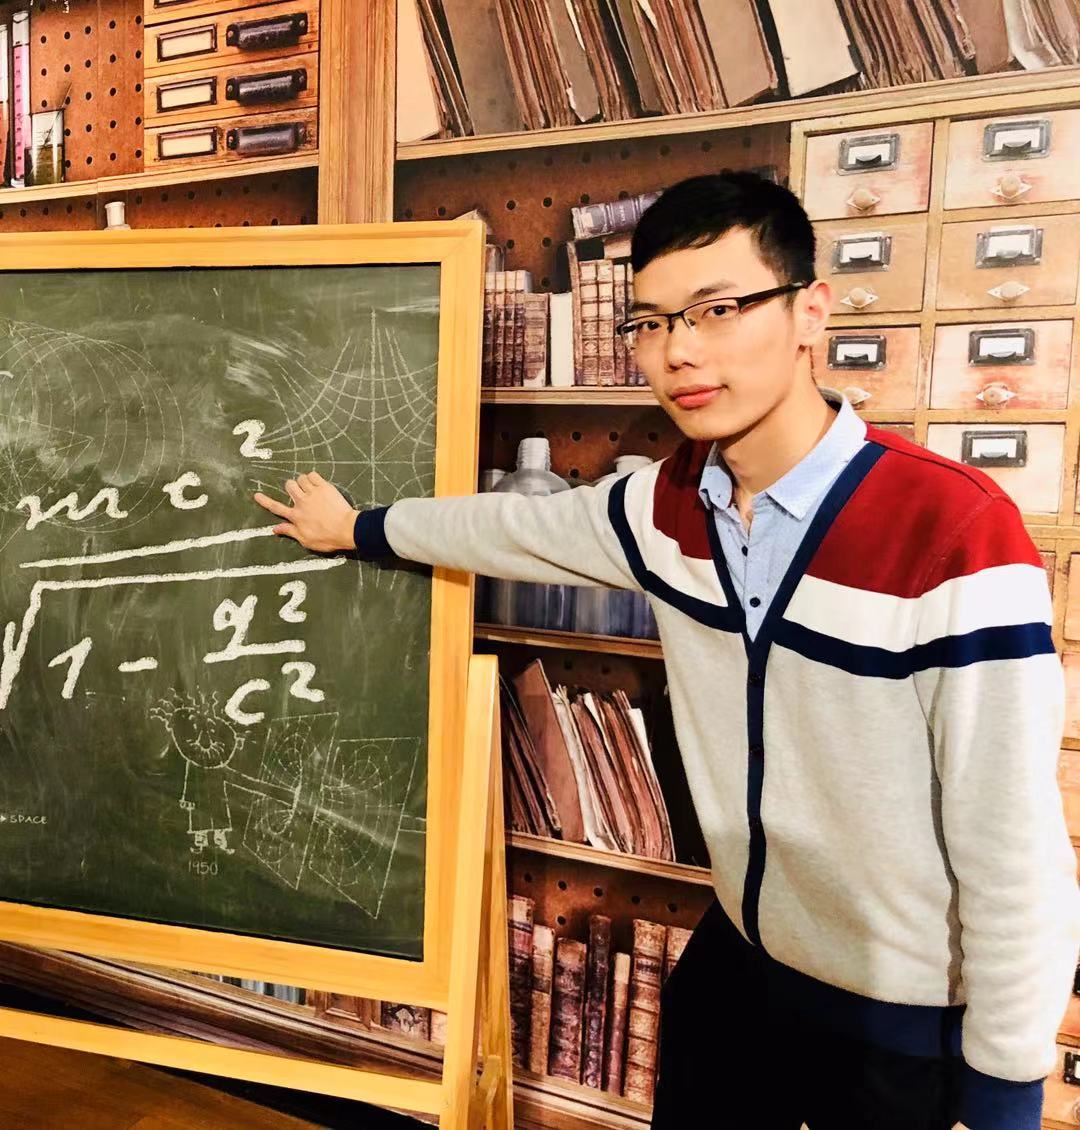 mc²
√1 - q²
c²
SPACE
1950